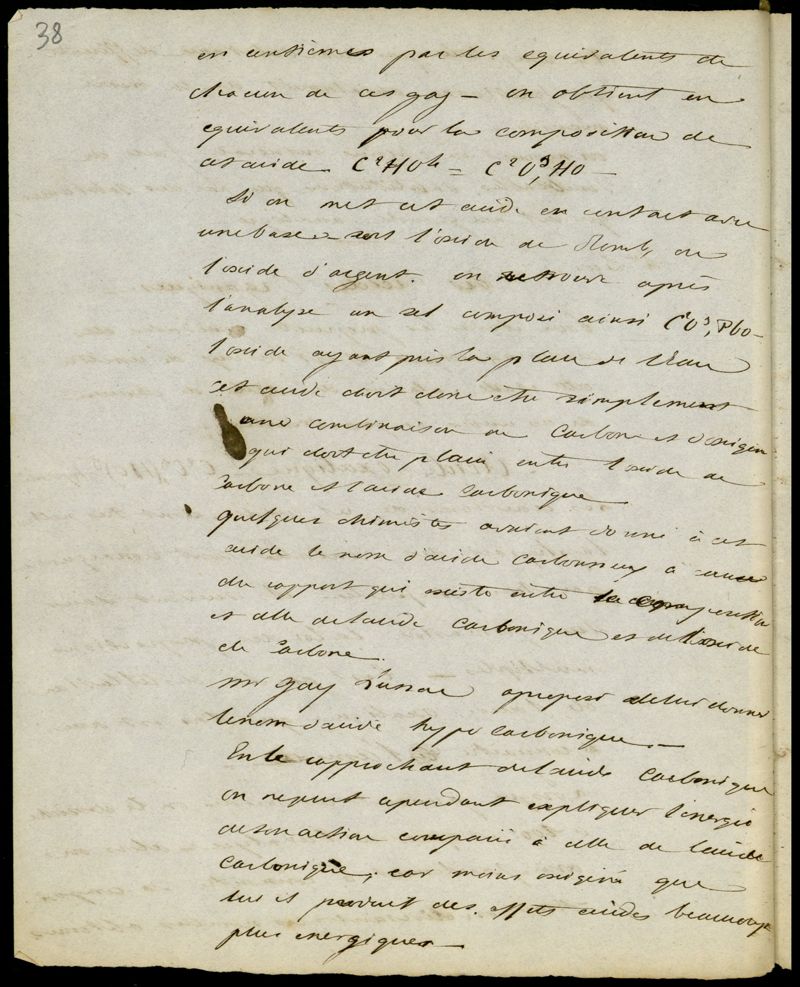 38
en centièmes par les equivalents de
chacun de ces gaz — on obtient en
equivalents pour la composition de
cet acide. C²HO⁴ = C²O³, HO —
Si on met cet acide en contact avec
une base soit l'oxide de Plomb, ou
l'oxide d'argent. on retrouve après
l'analyse un sel composé ainsi C²O³, PbO —
l'oxide ayant pris la place de l'eau
cet acide doit donc etre simplement
une combinaison de Carbone et d'oxigen
qui doit etre placé entre l'oxide de
Carbone et l'acide Carbonique
quelques chimistes avaient donné à cet
acide le nom d'acide Carboneux à cause
du rapport qui existe entre sa composition
et celle de l'acide Carbonique et de l'oxide
de Carbone.
Mr Gay Lussac a proposé de lui donner
le nom d'acide hypo Carbonique. —
En le rapprochant de l'acide Carbonique
on ne peut cependant expliquer l'énergie
de son action comparée à celle de l'acide
Carbonique, car moins oxigéné que
lui il produit des effets acides beaucoup
plus energiques —